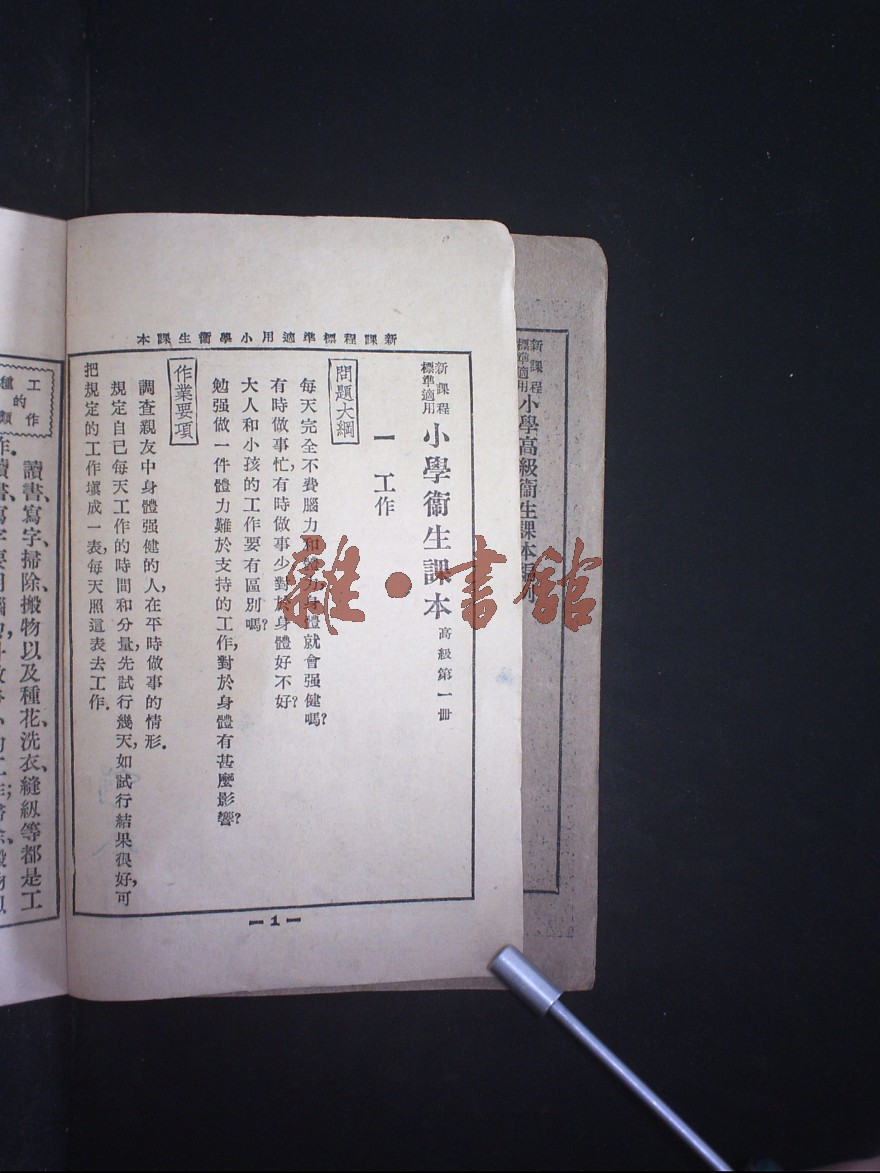 新課程標準適用小學高級衞生課本
新課程標準適用小學衞生課本
新課程
標準適用
小學衞生課本
高級第一冊
一 工作
問題大綱
每天完全不費腦力和體力,身體就會强健嗎?
有時做事忙,有時做事少,對於身體好不好?
大人和小孩的工作要有區別嗎?
勉强做一件體力難於支持的工作,對於身體有甚麼影響?
作業要項
調查親友中身體强健的人,在平時做事的情形.
規定自己每天工作的時間和分量,先試行幾天,如試行結果很好,可
把規定的工作塡成一表,每天照這表去工作.
1
工作
的
種類
讀書、寫字、掃除、搬物以及種花、洗衣、縫紉等都是工
作.讀書、寫字要用腦
雜·書館